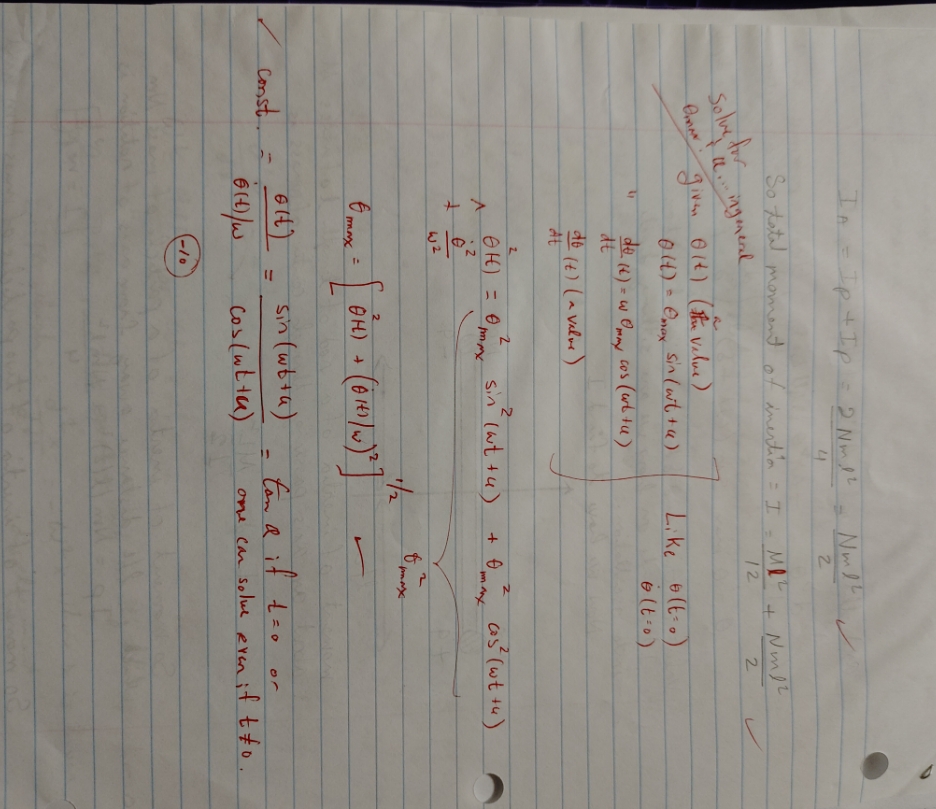 I_A = I_P + I_P = 2Nml²/4 = Nml²/2 ✓
So total moment of inertia = I = Ml²/12 + Nml²/2 ✓
Solve for
θmax, α... in general
given θ(t) (a value)
θ(t) = θmax sin(ωt+α) Like θ(t=0)
" dθ/dt (t) = ω θmax cos(ωt+α) θ̇(t=0)
dθ/dt (t) (a value)
θ²(t) = θ²max sin²(ωt+α) + θ²max cos²(ωt+α)
+ θ̇²/ω²
θ²max
θmax = [θ²(t) + (θ̇(t)/ω)²]^1/2 ✓
✓ const. = θ(t)/(θ̇(t)/ω) = sin(ωt+α)/cos(ωt+α) = tan α if t=0 or
one can solve even if t≠0.
-10